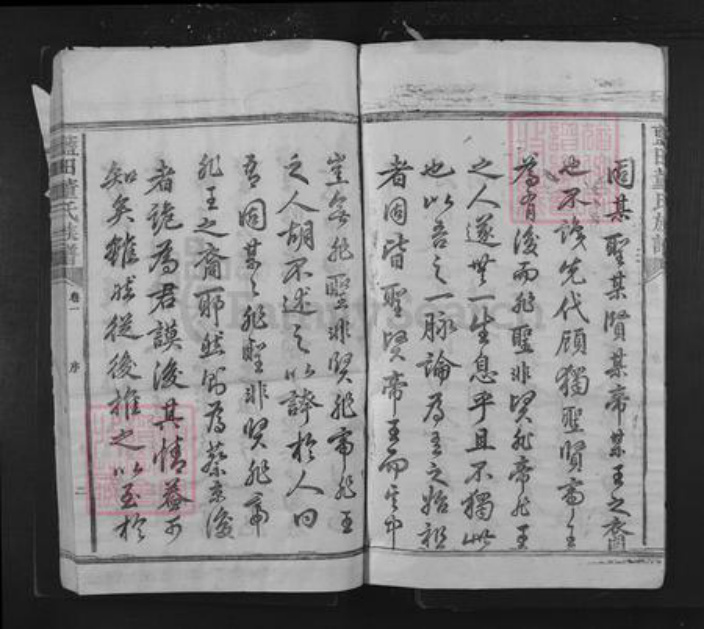 固某聖某賢某帝某王之裔
也不識先代顧獨聖賢帝王
為有後而非聖非賢非帝非王
之人遂無一生息乎且不獨此
也以吾之一脉論為吾之始祖
者固皆聖賢帝王而其中
豈無非聖非賢非帝非王
之人胡不述之以誇於人曰
吾固某之非聖非賢非帝
非王之裔耶然則為蔡京後
者詭為君謨後其情益可
知矣雖然從後推之以至於
藍田黃氏族譜
卷一
序
二